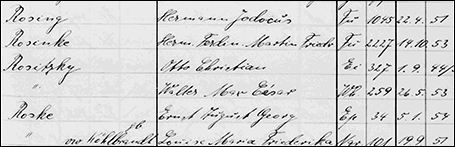 Rosing Hermann Jodocus Fu 1045 22.4. 51
Rosenke Herm. Ferdin. Martin Friedr. Fu 2227 14.10. 53
Rositzky Otto Christian Ei 327 1.9. 44/5
" Walter Max Cäsar 259 26.5. 53
Roske Ernst August Georg 34 5.1. 54
" geb Louise Maria Friederike 101 19.9. 51